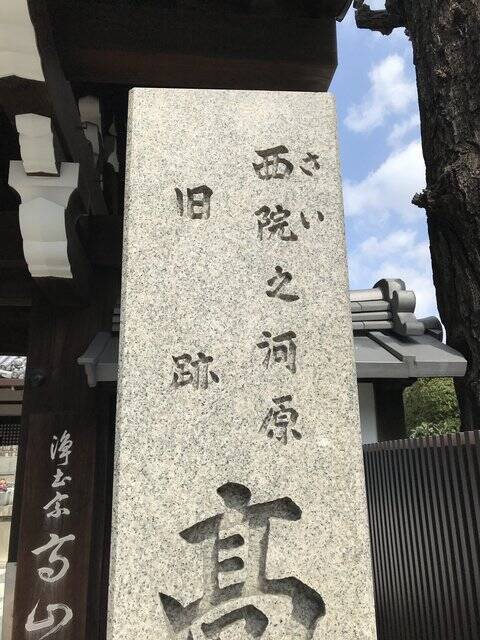 西院之河原
さい
旧跡
高
浄土宗高山